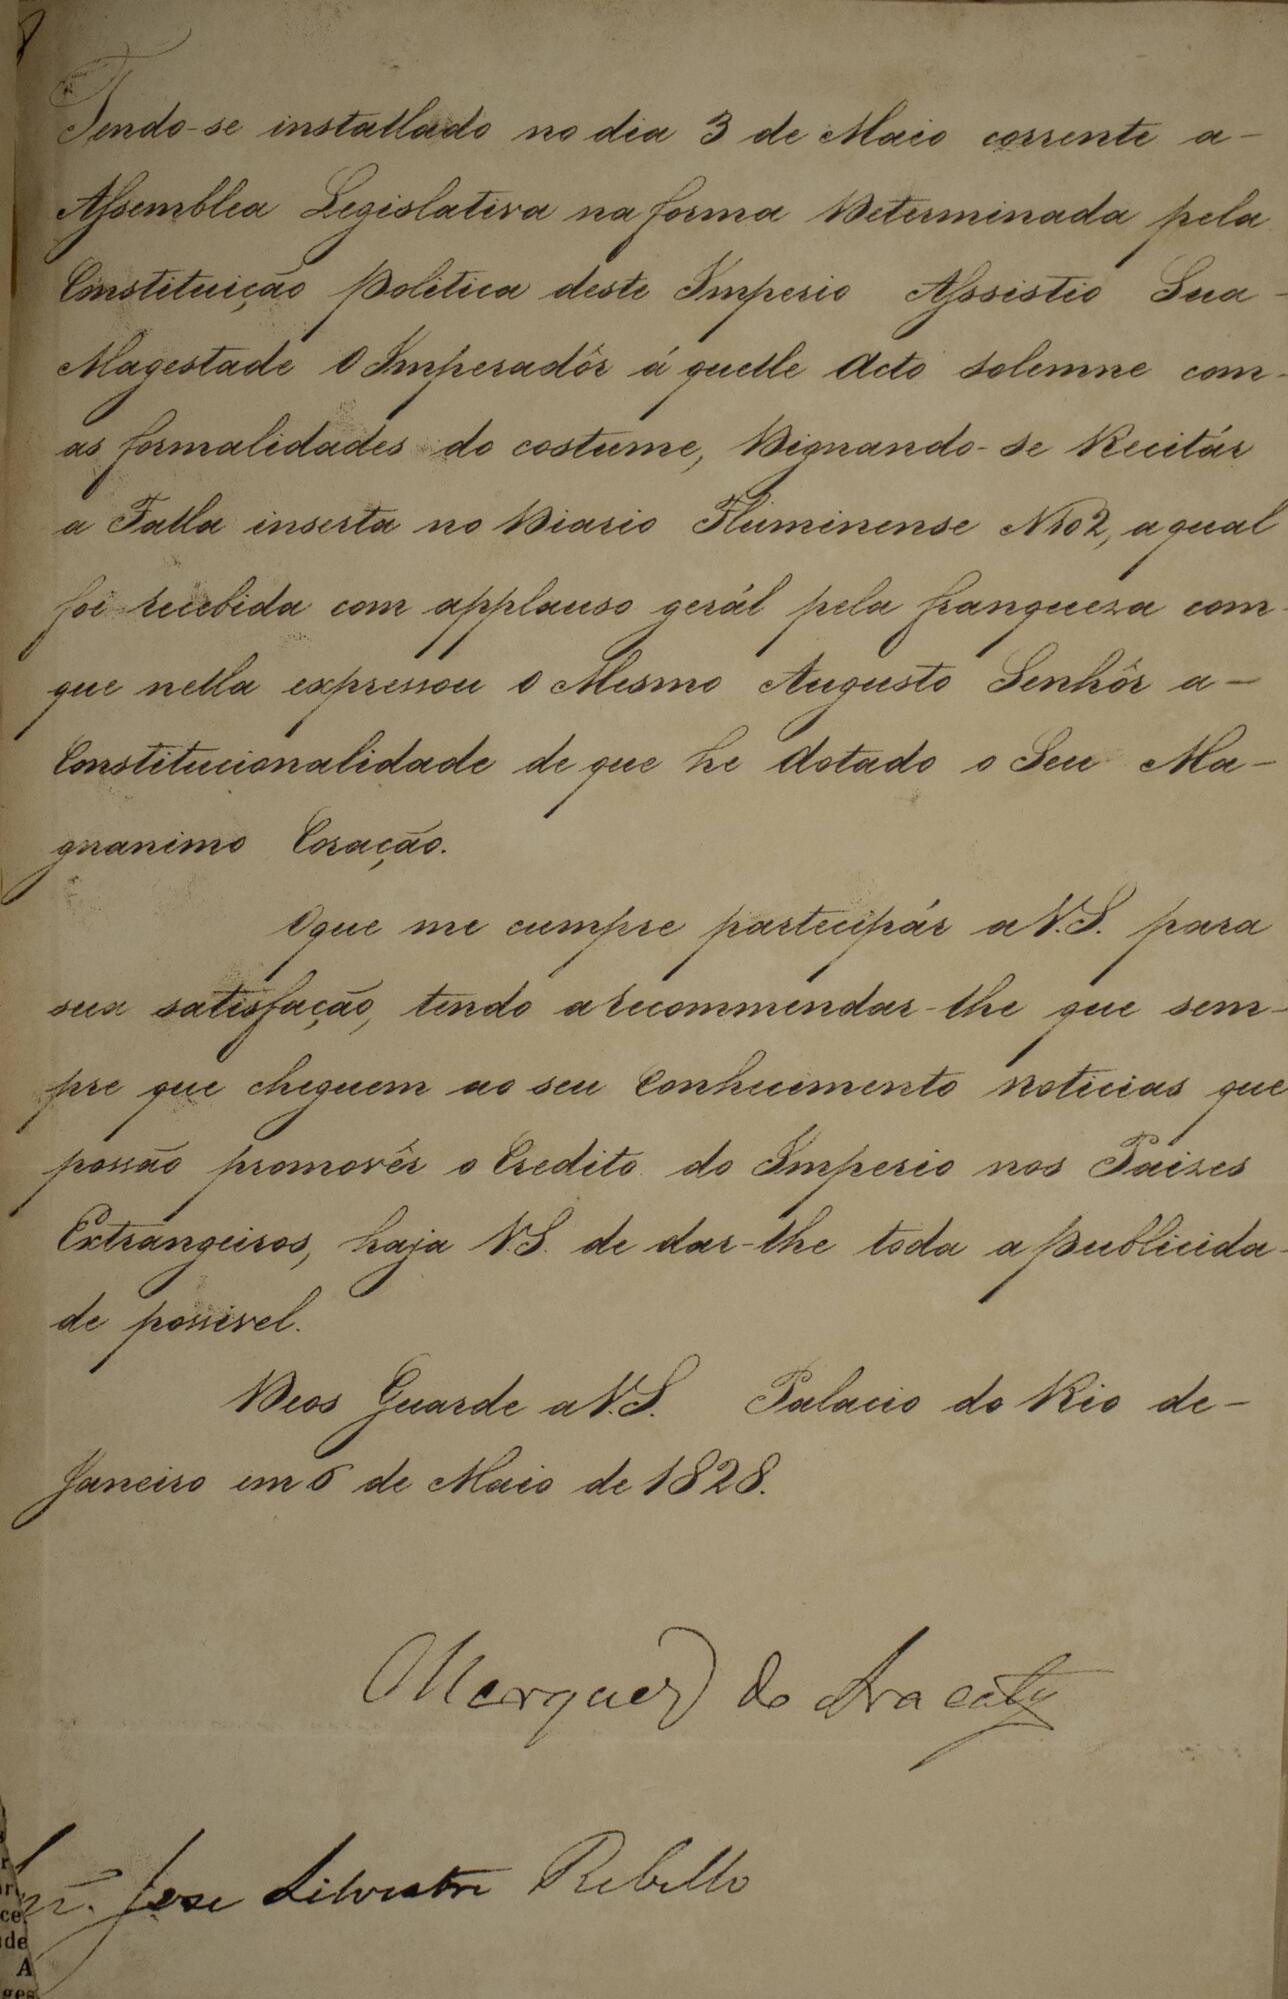 Tendo-se installado no dia 3 de Maio corrente a-
Assemblea Legislativa na forma Determinada pela
Constituição Politica deste Imperio Assistio Sua-
Magestade O Imperadôr á quelle Acto solemne com-
as formalidades do costume, Dignando-se Recitár
a Falla inserta no Diario Fluminense N 102, a qual
foi recebida com applauso gerál pela franqueza com-
que nella expressou O Mesmo Augusto Senhôr a-
Constitucionalidade de que he dotado o Seu Ma-
gnanimo Coração.
O que me cumpre partecipár a V.S. para
sua satisfação, tendo a recommendar-lhe que sem-
pre que cheguem ao seu Conhecimento noticias que
possão promovêr o Credito do Imperio nos Paizes
Extrangeiros, haja V.S. de dar-lhe toda a publicida-
de possivel.
Deos Guarde a V.S. Palacio do Rio de-
Janeiro em 6 de Maio de 1828.
Marquez do Aracaty
Snr. Jose Silvestre Rebello
ce
de
A
ges